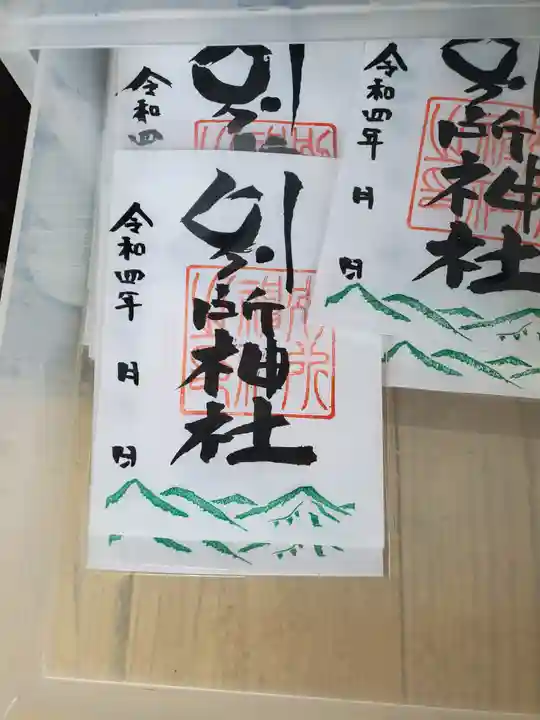 別所神社
令和四年 月 日
別所神社
令和四年 月 日
別
令和四